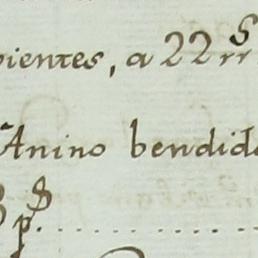 pientes, a 22 rrˢ
Anino bendido
pˢ.............